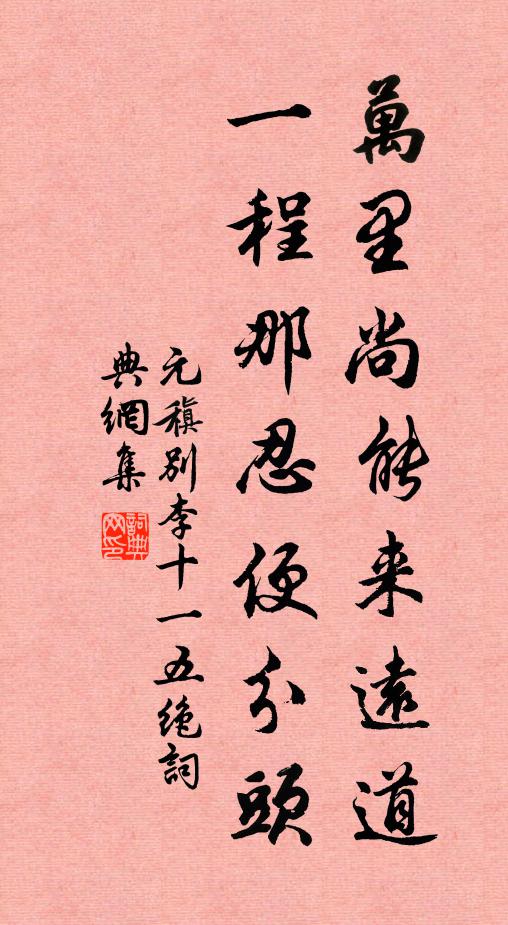 萬里尚能来遠道
一程那忍便分頭
元稹别李十一五绝詞
典網集
詞典
网印